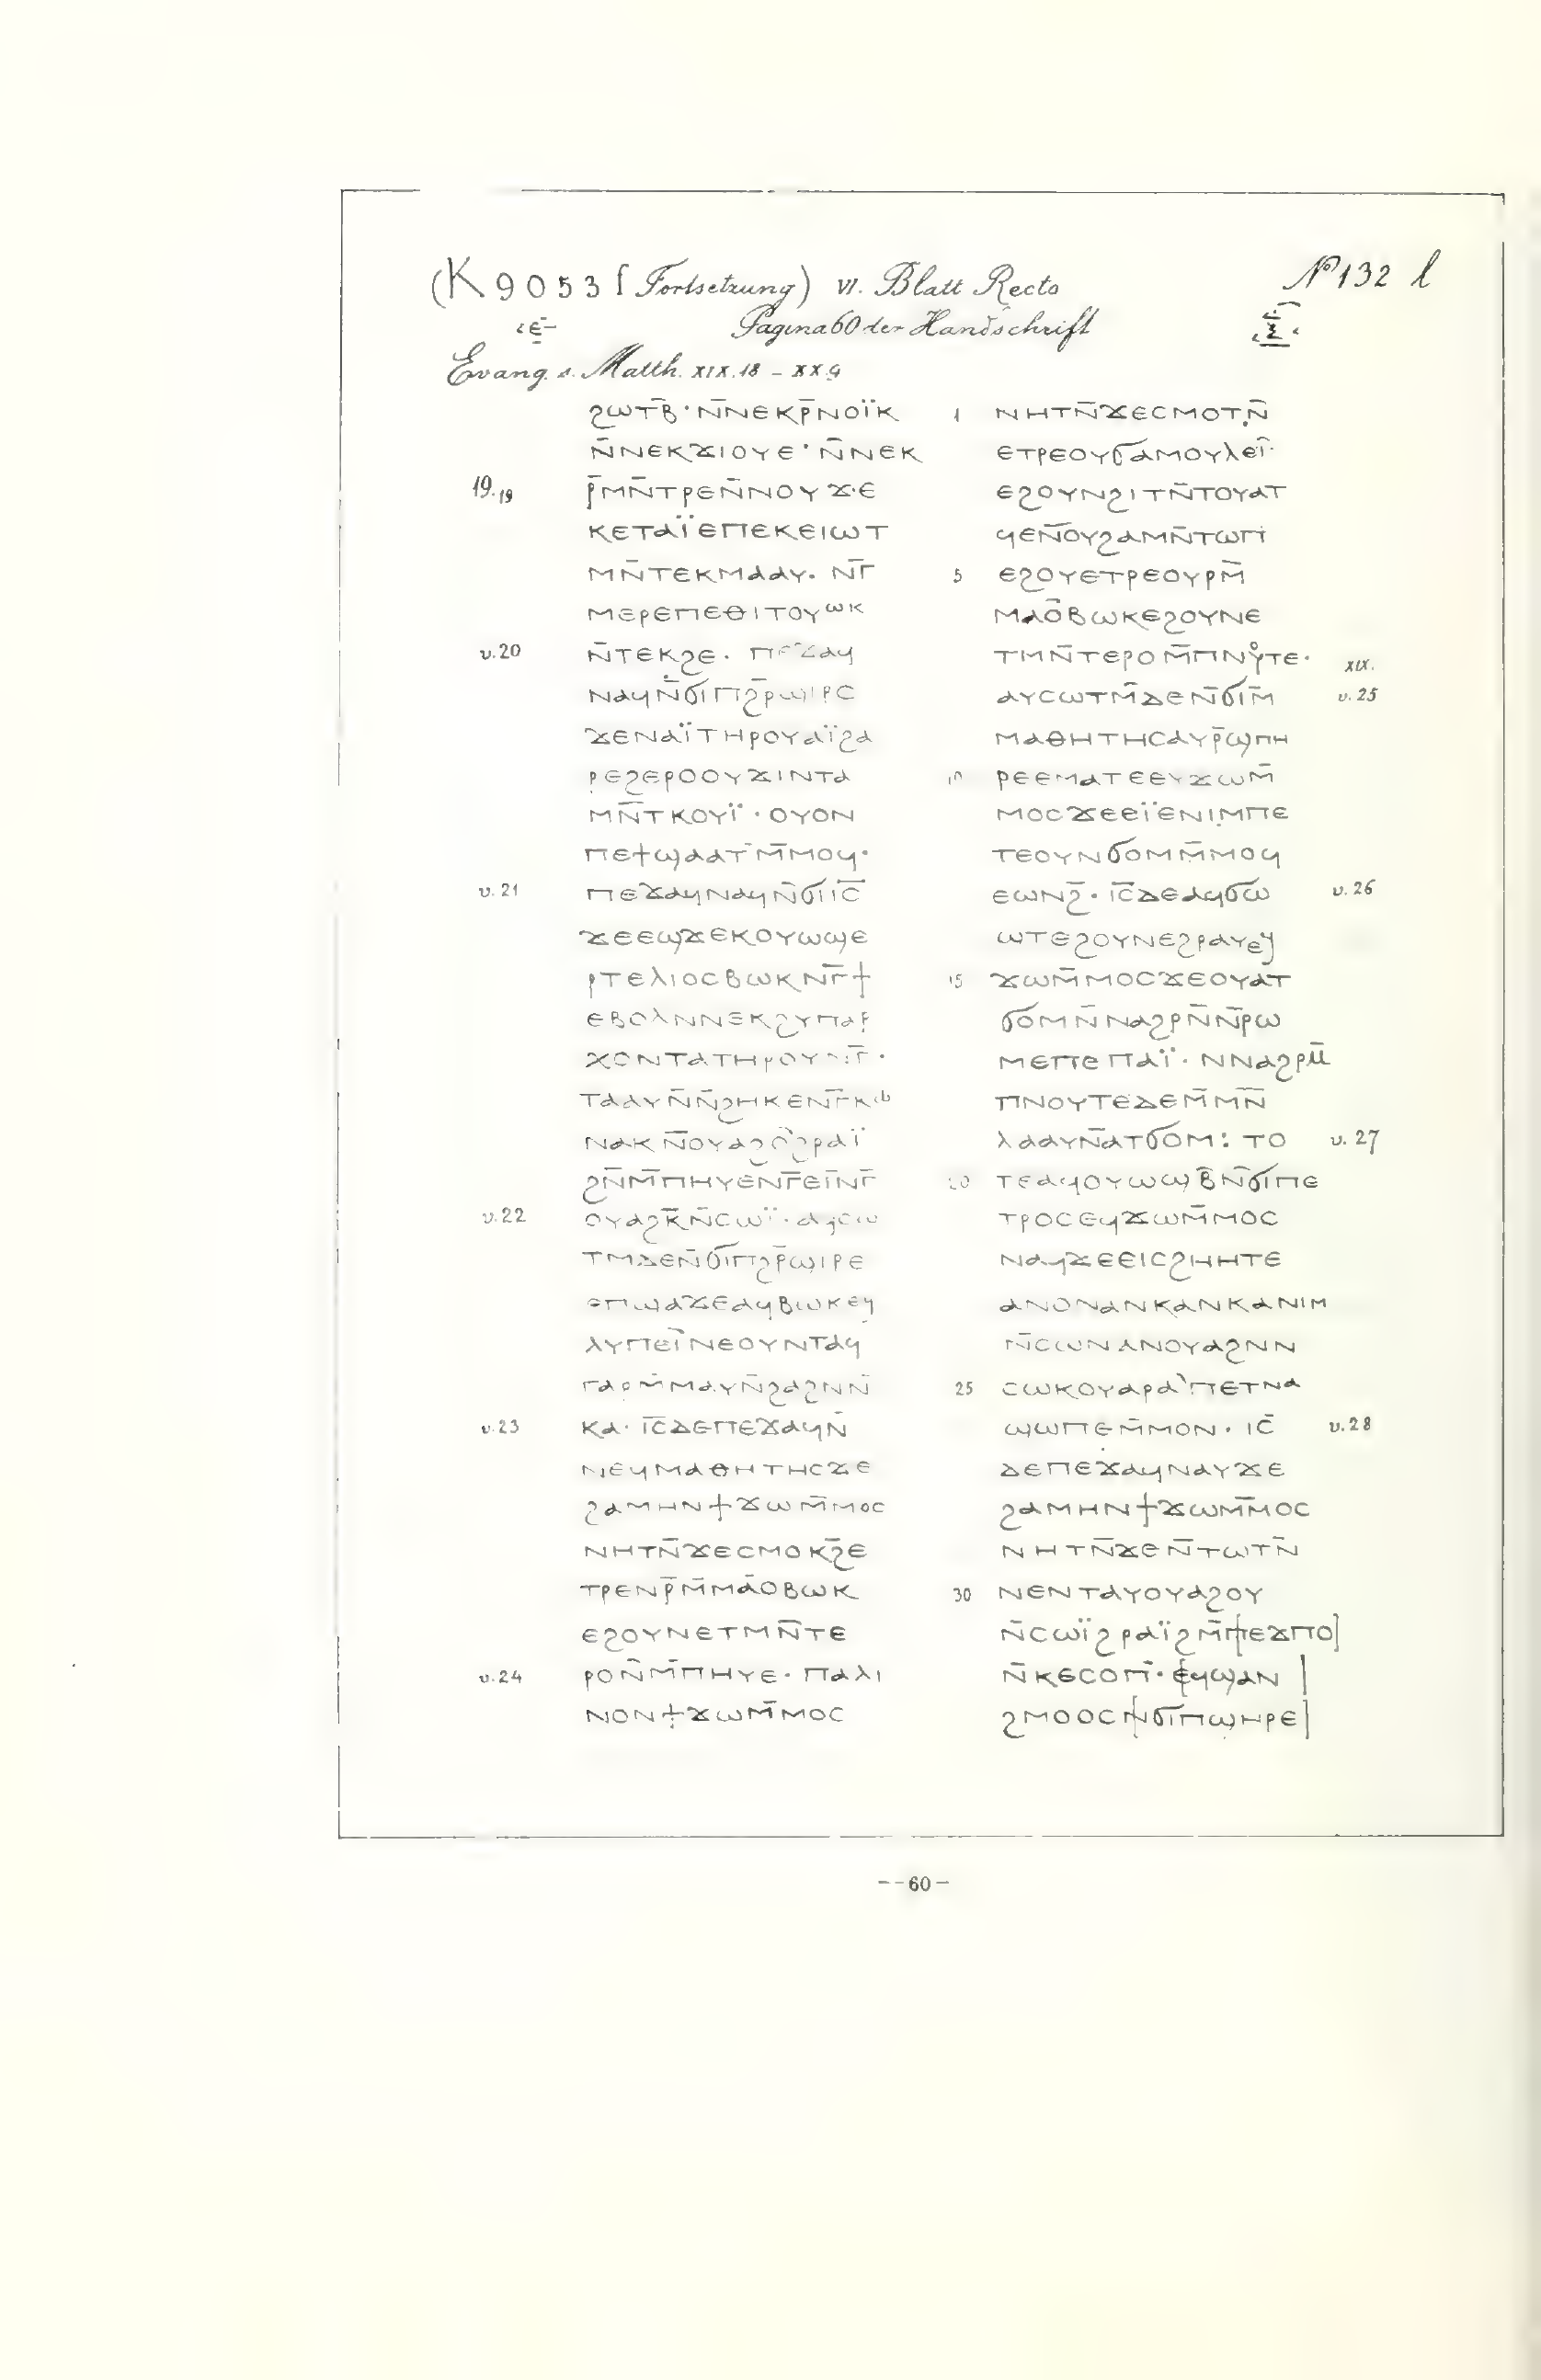 (K 9053 [Fortsetzung) VI. Blatt Recto
Nº 132 l
ⲉ̄
Pagina 60 der Handschrift
ⲝ̄
Evang. s. Matth. XIX.18 – XX.9
ϩⲱⲧⲃ̄·ⲛ̄ⲛⲉⲕⲣ̄ⲛⲟⲓ̈ⲕ
ⲛ̄ⲛⲉⲕϫⲓⲟⲩⲉ·ⲛ̄ⲛⲉⲕ
19.19 ⲣ̄ⲙⲛ̄ⲧⲣⲉⲛ̄ⲛⲟⲩϫ·ⲉ
ⲕⲉⲧⲁⲓ̈ⲉⲡⲉⲕⲉⲓⲱⲧ
ⲙⲛ̄ⲧⲉⲕⲙⲁⲁⲩ. ⲛⲅ̄
ⲙⲉⲣⲉⲡⲉⲑⲓⲧⲟⲩⲱⲕ
v.20 ⲛ̄ⲧⲉⲕϩⲉ. ⲡⲉϫⲁϥ
ⲛⲁϥⲛ̄ϭⲓⲡϩⲣ̄ϣⲓⲣⲉ
ϫⲉⲛⲁⲓ̈ⲧⲏⲣⲟⲩⲁⲓ̈ϩⲁ
ⲣⲉϩⲉⲣⲟⲟⲩϫⲓⲛⲧⲁ
ⲙⲛ̄ⲧⲕⲟⲩⲓ̈·ⲟⲩⲟⲛ
ⲡⲉϯϣⲁⲁⲧⲙ̄ⲙⲟϥ·
v. 21 ⲡⲉϫⲁϥⲛⲁϥⲛ̄ϭⲓⲓ̄ⲥ̄
ϫⲉⲉϣϫⲉⲕⲟⲩⲱϣⲉ
ⲣⲧⲉⲗⲓⲟⲥⲃⲱⲕⲛⲅ̄ϯ
ⲉⲃⲟⲗⲛⲛⲉⲕϩⲩⲡⲁⲣ
ⲭⲟⲛⲧⲁⲧⲏⲣⲟⲩⲛⲅ̄·
ⲧⲁⲁⲩⲛ̄ⲛ̄ϩⲏⲕⲉⲛⲅ̄ⲕⲱ
ⲛⲁⲕⲛ̄ⲟⲩⲁϩⲟϩⲣⲁⲓ̈
ϩⲛ̄ⲙ̄ⲡⲏⲩⲉⲛⲅ̄ⲉⲓⲛⲅ̄
v.22 ⲟⲩⲁϩⲕ̄ⲛ̄ⲥⲱⲓ̈·ⲁϥⲥⲱ
ⲧⲙⲇⲉⲛ̄ϭⲓⲡϩⲣ̄ϣⲓⲣⲉ
ⲉⲡϣⲁϫⲉⲁϥⲃⲱⲕⲉϥ
ⲗⲩⲡⲉⲓ̄ⲛⲉⲟⲩⲛⲧⲁϥ
ⲅⲁⲣⲙ̄ⲙⲁⲩⲛ̄ϩⲁϩⲛⲛ̄
v.23 ⲕⲁ· ⲓ̄ⲥ̄ⲇⲉⲡⲉϫⲁϥⲛ̄
ⲛⲉϥⲙⲁⲑⲏⲧⲏⲥϫⲉ
ϩⲁⲙⲏⲛϯϫⲱⲙ̄ⲙⲟⲥ
ⲛⲏⲧⲛ̄ϫⲉⲥⲙⲟⲕϩ̄ⲉ
ⲧⲣⲉⲛⲣ̄ⲙ̄ⲙⲁⲟⲃⲱⲕ
ⲉϩⲟⲩⲛⲉⲧⲙⲛ̄ⲧⲉ
v.24 ⲣⲟⲛ̄ⲙ̄ⲡⲏⲩⲉ· ⲡⲁⲗⲓ
ⲛⲟⲛϯϫⲱⲙ̄ⲙⲟⲥ
1 ⲛⲏⲧⲛ̄ϫⲉⲥⲙⲟⲧⲛ̄
ⲉⲧⲣⲉⲟⲩϭⲁⲙⲟⲩⲗⲉⲓ̄·
ⲉϩⲟⲩⲛϩⲓⲧⲛ̄ⲧⲟⲩⲁⲧ
ϥⲉⲛ̄ⲟⲩϩⲁⲙⲛ̄ⲧⲱⲡ
5 ⲉϩⲟⲩⲉⲧⲣⲉⲟⲩⲣⲙ̄
ⲙⲁⲟ̄ⲃⲱⲕⲉϩⲟⲩⲛⲉ
ⲧⲙⲛ̄ⲧⲉⲣⲟⲙ̄ⲡⲛⲟⲩⲧⲉ· XIX.
ⲁⲩⲥⲱⲧⲙ̄ⲇⲉⲛ̄ϭⲓⲙ̄ v.25
ⲙⲁⲑⲏⲧⲏⲥⲁⲩⲣ̄ϣⲡⲏ
10 ⲣⲉⲉⲙⲁⲧⲉⲉⲩϫⲱⲙ̄
ⲙⲟⲥϫⲉⲉⲓ̈ⲉⲛⲓⲙⲡⲉ
ⲧⲉⲟⲩⲛϭⲟⲙⲙ̄ⲙⲟϥ
ⲉⲱⲛϩ̄·ⲓ̄ⲥ̄ⲇⲉⲁϥϭⲱ v.26
ϣⲧⲉϩⲟⲩⲛⲉϩⲣⲁⲩⲉϥ
15 ϫⲱⲙ̄ⲙⲟⲥϫⲉⲟⲩⲁⲧ
ϭⲟⲙⲛ̄ⲛⲁϩⲣⲛ̄ⲛ̄ⲣⲱ
ⲙⲉⲡⲉⲡⲁⲓ̈·ⲛⲛⲁϩⲣⲙ̄
ⲡⲛⲟⲩⲧⲉⲇⲉⲙ̄ⲙⲛ̄
ⲗⲁⲁⲩⲛ̄ⲁⲧϭⲟⲙ: ⲧⲟ v. 27
20 ⲧⲉⲁϥⲟⲩⲱϣⲃ̄ⲛ̄ϭⲓⲡⲉ
ⲧⲣⲟⲥⲉϥϫⲱⲙ̄ⲙⲟⲥ
ⲛⲁϥϫⲉⲉⲓⲥϩⲏⲏⲧⲉ
ⲁⲛⲟⲛⲁⲛⲕⲁⲛⲕⲁⲛⲓⲙ
ⲛ̄ⲥⲱⲛⲁⲛⲟⲩⲁϩⲛⲛ
25 ⲥⲱⲕⲟⲩⲁⲣⲁ`ⲡⲉⲧⲛⲁ
ϣⲱⲡⲉⲙ̄ⲙⲟⲛ· ⲓⲥ̄ v.28
ⲇⲉⲡⲉϫⲁϥⲛⲁⲩϫⲉ
ϩⲁⲙⲏⲛϯϫⲱⲙ̄ⲙⲟⲥ
ⲛⲏⲧⲛ̄ϫⲉⲛ̄ⲧⲱⲧⲛ̄
30 ⲛⲉⲛⲧⲁⲩⲟⲩⲁϩⲟⲩ
ⲛ̄ⲥⲱⲓ̈ϩⲣⲁⲓ̈ϩⲙ̄[ⲡⲉϫⲡⲟ]
ⲛ̄ⲕⲉⲥⲟⲡ·[ⲉϥϣⲁⲛ]
ϩⲙⲟⲟⲥ[ⲛϭⲓⲡϣⲏⲣⲉ]
--60–